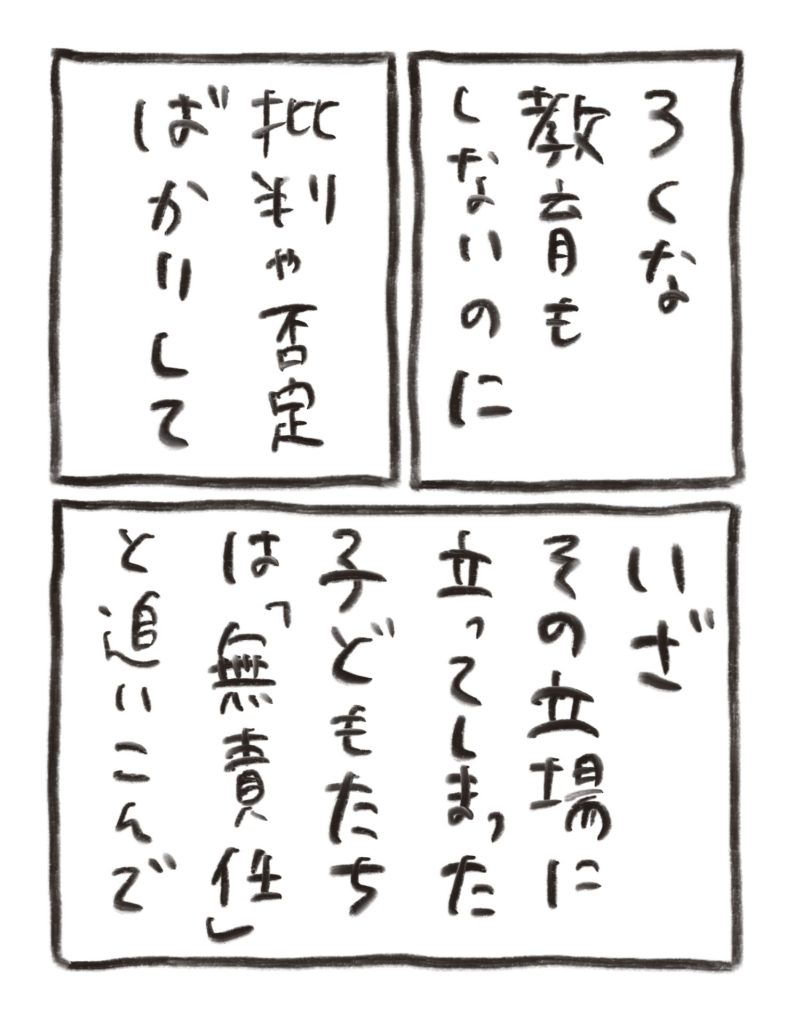 ろくな
教育も
しないのに
批判や否定
ばかりして
いざ
その立場に
立ってしまった
子どもたち
は「無責任」
と追いこんで